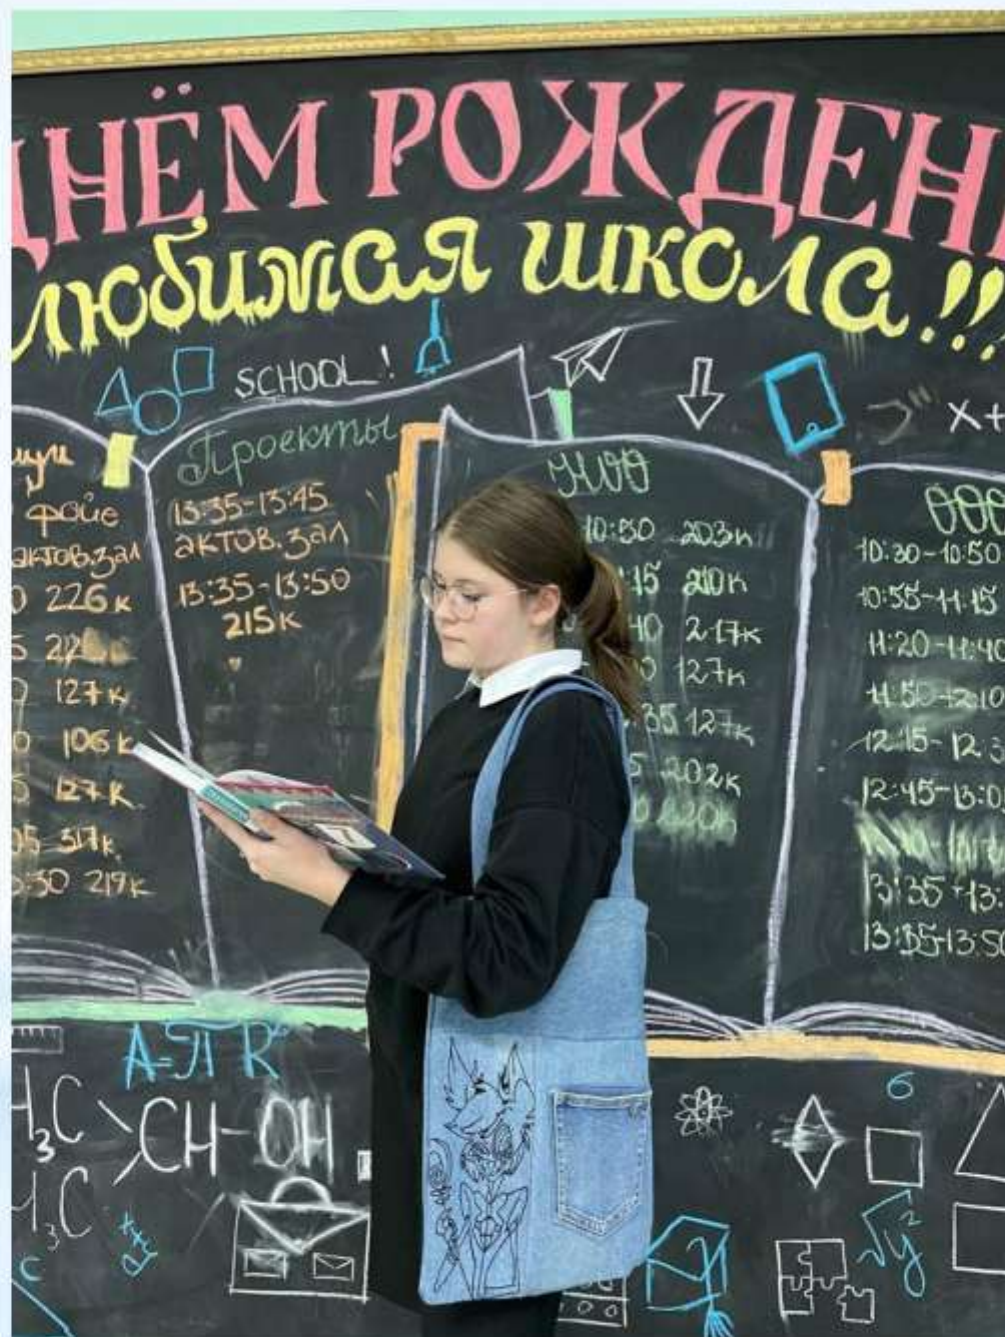 ДНЁМ РОЖДЕН
любимая школа!!!
SCHOOL!
X+
фойе
актов.зал
226к
127к
106к
127к
317к
219к
Проекты
13:35-13:45
актов.зал
13:35-13:50
215к
НОО
10:50 203к
15 210к
40 217к
127к
35 127к
202к
ООО
10:30-10:50
10:55-11:15
11:20-11:40
11:50-12:10
12:15-12:3
12:45-13:0
13:35-13:
13:35-13:50
A=π R²
H₃C
CH-OH
H₃C
x+y
c
6
√y²